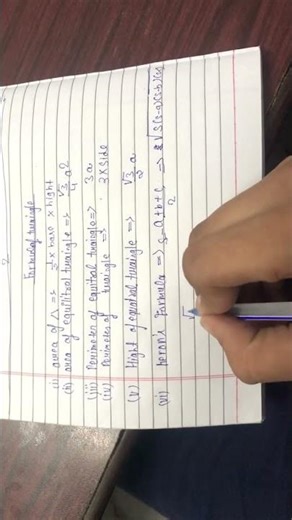 Formulaf traigle
(i) area of △ => ½ × bare × hight
(ii) area of equilitral traigle => √3/4 a²
(iii) Perimeter of equitral traigle => 3a
(iv) Perimeter of traigle => 3 × side
(v) Hight of equatral traigle => √3/2 a
(vi) heron's Formula => s = a+b+c/2 => √s(s-a)(s-b)(s-c)
√